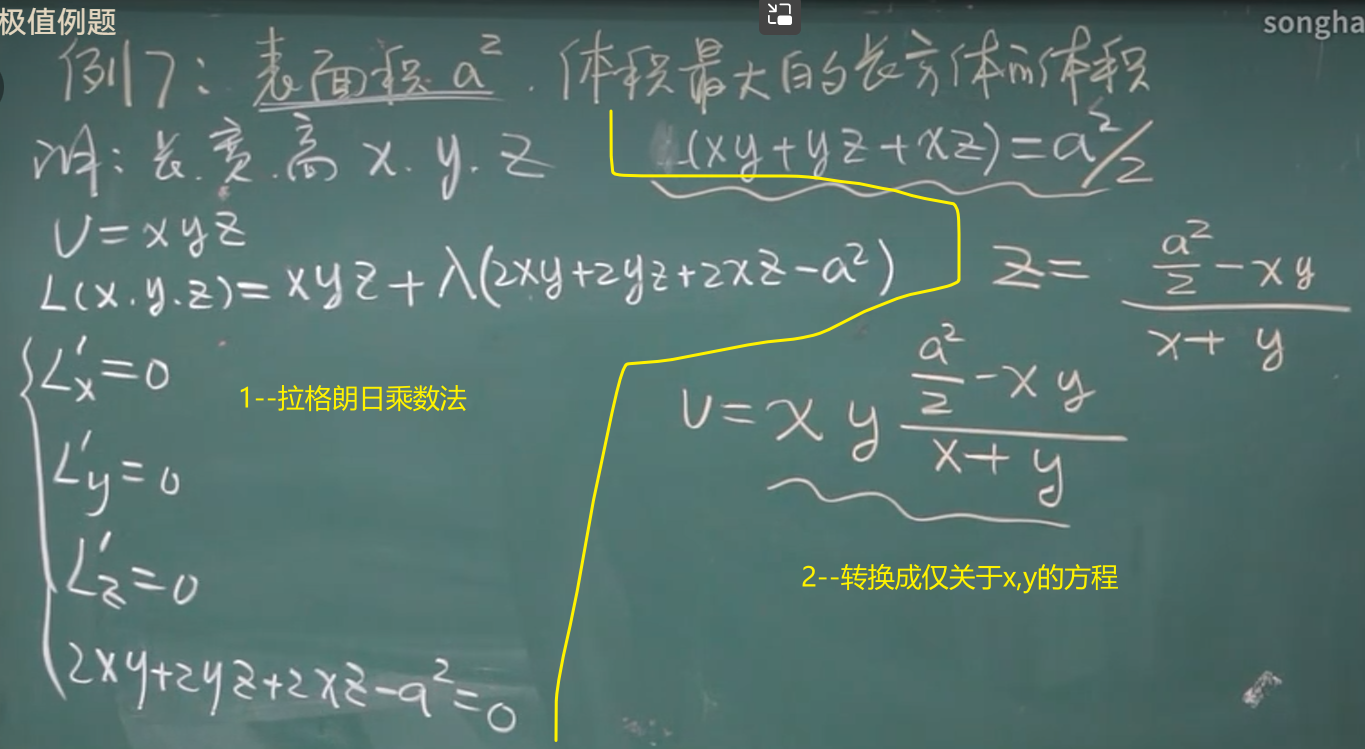 极值例题
songha
例7: 表面积 a². 体积最大的长方体的体积
解: 长.宽.高 x.y.z
(xy+yz+xz)=a²/2
V=xyz
L(x.y.z)=xyz+λ(2xy+2yz+2xz-a²)
L'x=0
L'y=0
L'z=0
2xy+2yz+2xz-a²=0
1--拉格朗日乘数法
z= (a²/2-xy)/(x+y)
V=xy (a²/2-xy)/(x+y)
2--转换成仅关于x,y的方程